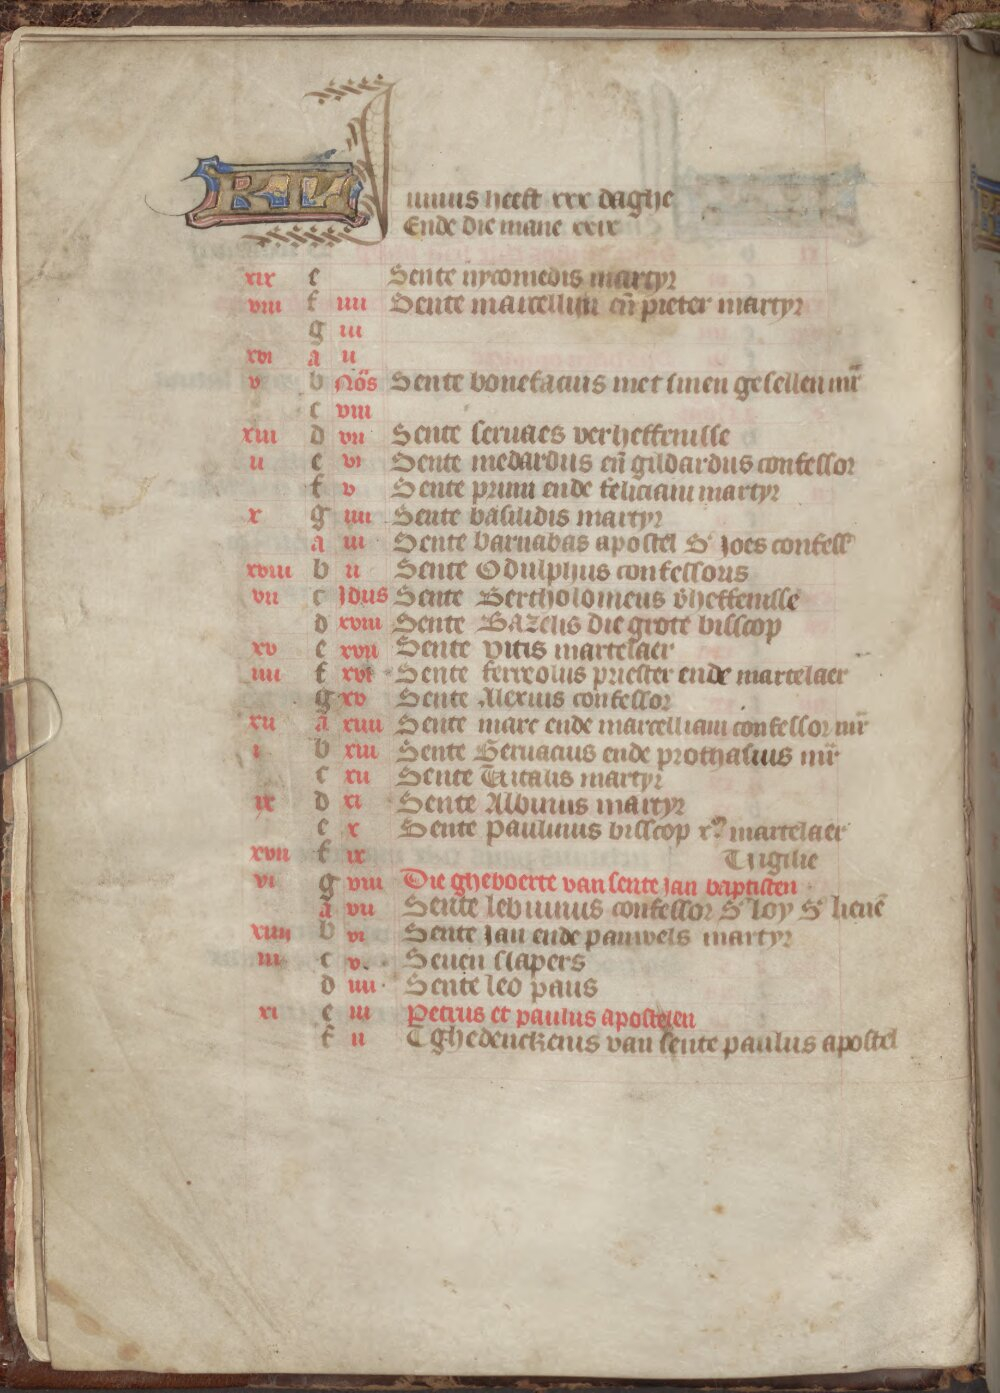 KL Junius heeft xxx daghe
Ende die mane xxix
xix e Sente nycomedis martyr
viii f iiii Sente marcellijn eñ pieter martyr
g iii
xvi a ii
v b Nõs Sente bonefacius met sinen gesellen mr̃
c viii
xiii d vii Sente seruaes verheffenisse
ii e vi Sente medardus eñ gildardus confessor
f v Sente primi ende feliciani martyr
x g iiii Sente basilidis martyr
a iii Sente barnabas apostel S' Joes confess'
xviii b ii Sente Odulphus confessoris
vii c Jdus Sente Bertholomeus v̄heffenisse
d xviii Sente Bazelis die grote bisscop
xv e xvii Sente vitis martelaer
iiii f xvi Sente ferreolus priester ende martelaer
g xv Sente Alexius confessor
xii a xiiii Sente marc ende marcelliani confessor mr̃
i b xiii Sente Geruacius ende prothasius mr̃
c xii Sente Vitalis martyr
ix d xi Sente Albinus martyr
e x Sente paulinus bisscop martelaer
xvii f ix Vigilie
vi g viii Die gheboerte van sente jan baptisten
a vii Sente lebuinus confessor S' loy S' lieuē
xiiii b vi Sente Jan ende pauwels martyr
iii c v. Seuen slapers
d iiii Sente leo paus
xi e iii Petrus et paulus apostelen
f ii Tghedenckenis van sente paulus apostel